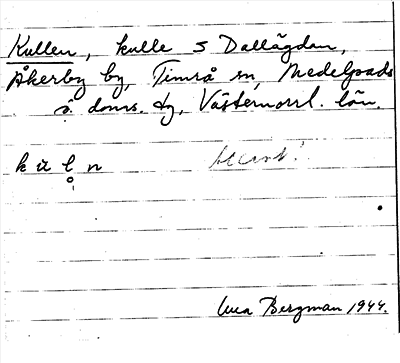 Kullen, kulle S Dallågdan,
Åkerby by, Timrå sn, Medelpads
ö. doms. tg, Västernorrl. län.
k u l n
Bergman 1944.